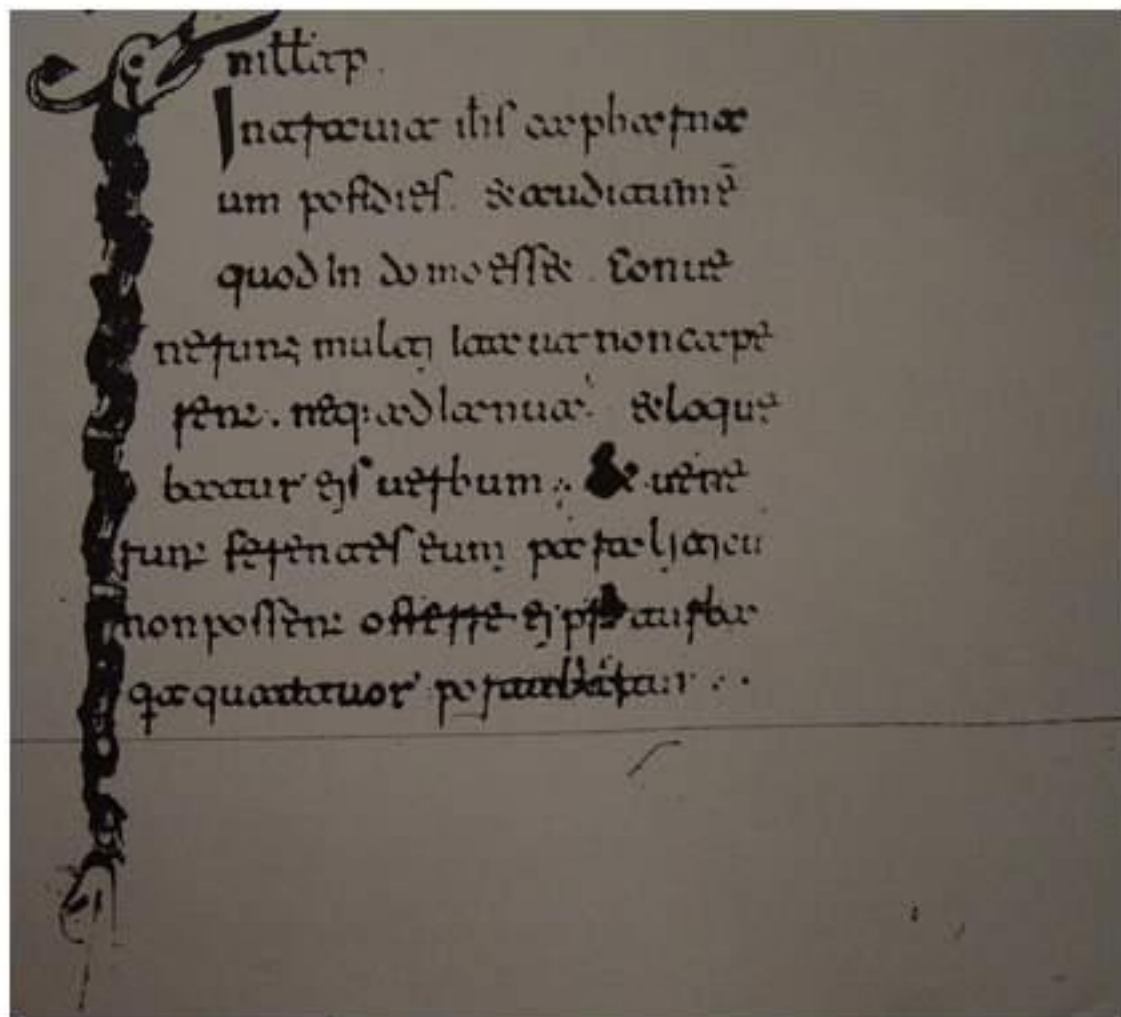 Intrauit ihs capharna
um post dies. & auditum ē
quod in domo esset. Conue
nerunt multi ita ut non cape
rent. neq: ad ianua. & loque
batur eis uerbum ∴ & uene
runt ferentes eum paraliticu
non possent offerre ei turba
quattuor